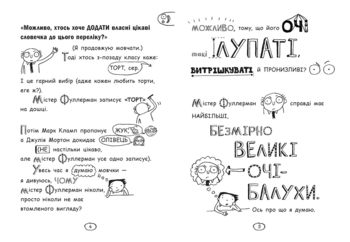 «Можливо, хтось хоче ДОДАТИ власні цікаві
словечка до цього переліку?»
(Я продовжую мовчати.)
Тоді хтось з-позаду класу каже:
ТОРТ, сер.
І це гарний вибір (адже кожен любить торти,
еге ж?).
Містер Фуллерман записує «ТОРТ»
на дошці.
Потім Марк Кламп пропонує ЖУК,
а Джулія Мортон докидає ОПІВЕЦЬ
(НЕ настільки цікаво,
але містер Фуллерман усе одно записує).
Увесь час я думаю мовчки —
я дивуюсь, ЧОМУ
містер Фуллерман ніколи,
просто ніколи не має
втомленого вигляду?
4
МОЖЛИВО, тому, що його ОЧІ
такі ЛУПАТІ,
ВИТРІШКУВАТІ й ПРОНИЗЛИВІ?
Містер Фуллерман справді має
НАЙБІЛЬШІ,
БЕЗМІРНО
ВЕЛИКІ
ОЧІ-
БАЛУХИ.
Ось про що я думаю.
5